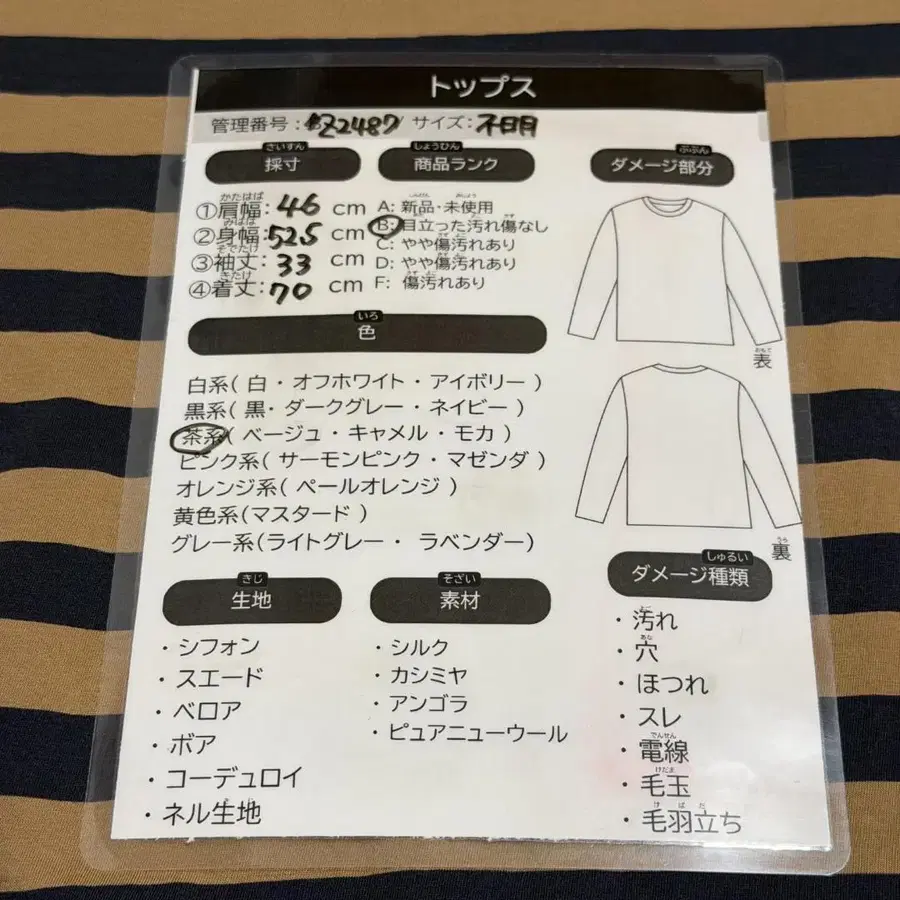 トップス
管理番号: Z2487 サイズ:不明
さいすん
採寸
しょうひん
商品ランク
ぶぶん
ダメージ部分
かたはば
①肩幅: 46 cm
みはば
②身幅: 52.5 cm
そでたけ
③袖丈: 33 cm
きたけ
④着丈: 70 cm
A: 新品・未使用
B: 目立った汚れ傷なし
C: やや傷汚れあり
D: やや傷汚れあり
F: 傷汚れあり
おもて
表
うら
裏
いろ
色
白系( 白・オフホワイト・アイボリー )
黒系( 黒・ダークグレー・ネイビー )
茶系( ベージュ・キャメル・モカ )
ピンク系( サーモンピンク・マゼンダ )
オレンジ系( ペールオレンジ )
黄色系(マスタード )
グレー系(ライトグレー・ ラベンダー)
きじ
生地
・シフォン
・スエード
・ベロア
・ボア
・コーデュロイ
・ネル生地
そざい
素材
・シルク
・カシミヤ
・アンゴラ
・ピュアニューウール
しゅるい
ダメージ種類
・汚れ
あな
・穴
・ほつれ
・スレ
でんせん
・電線
けだま
・毛玉
けばだ
・毛羽立ち